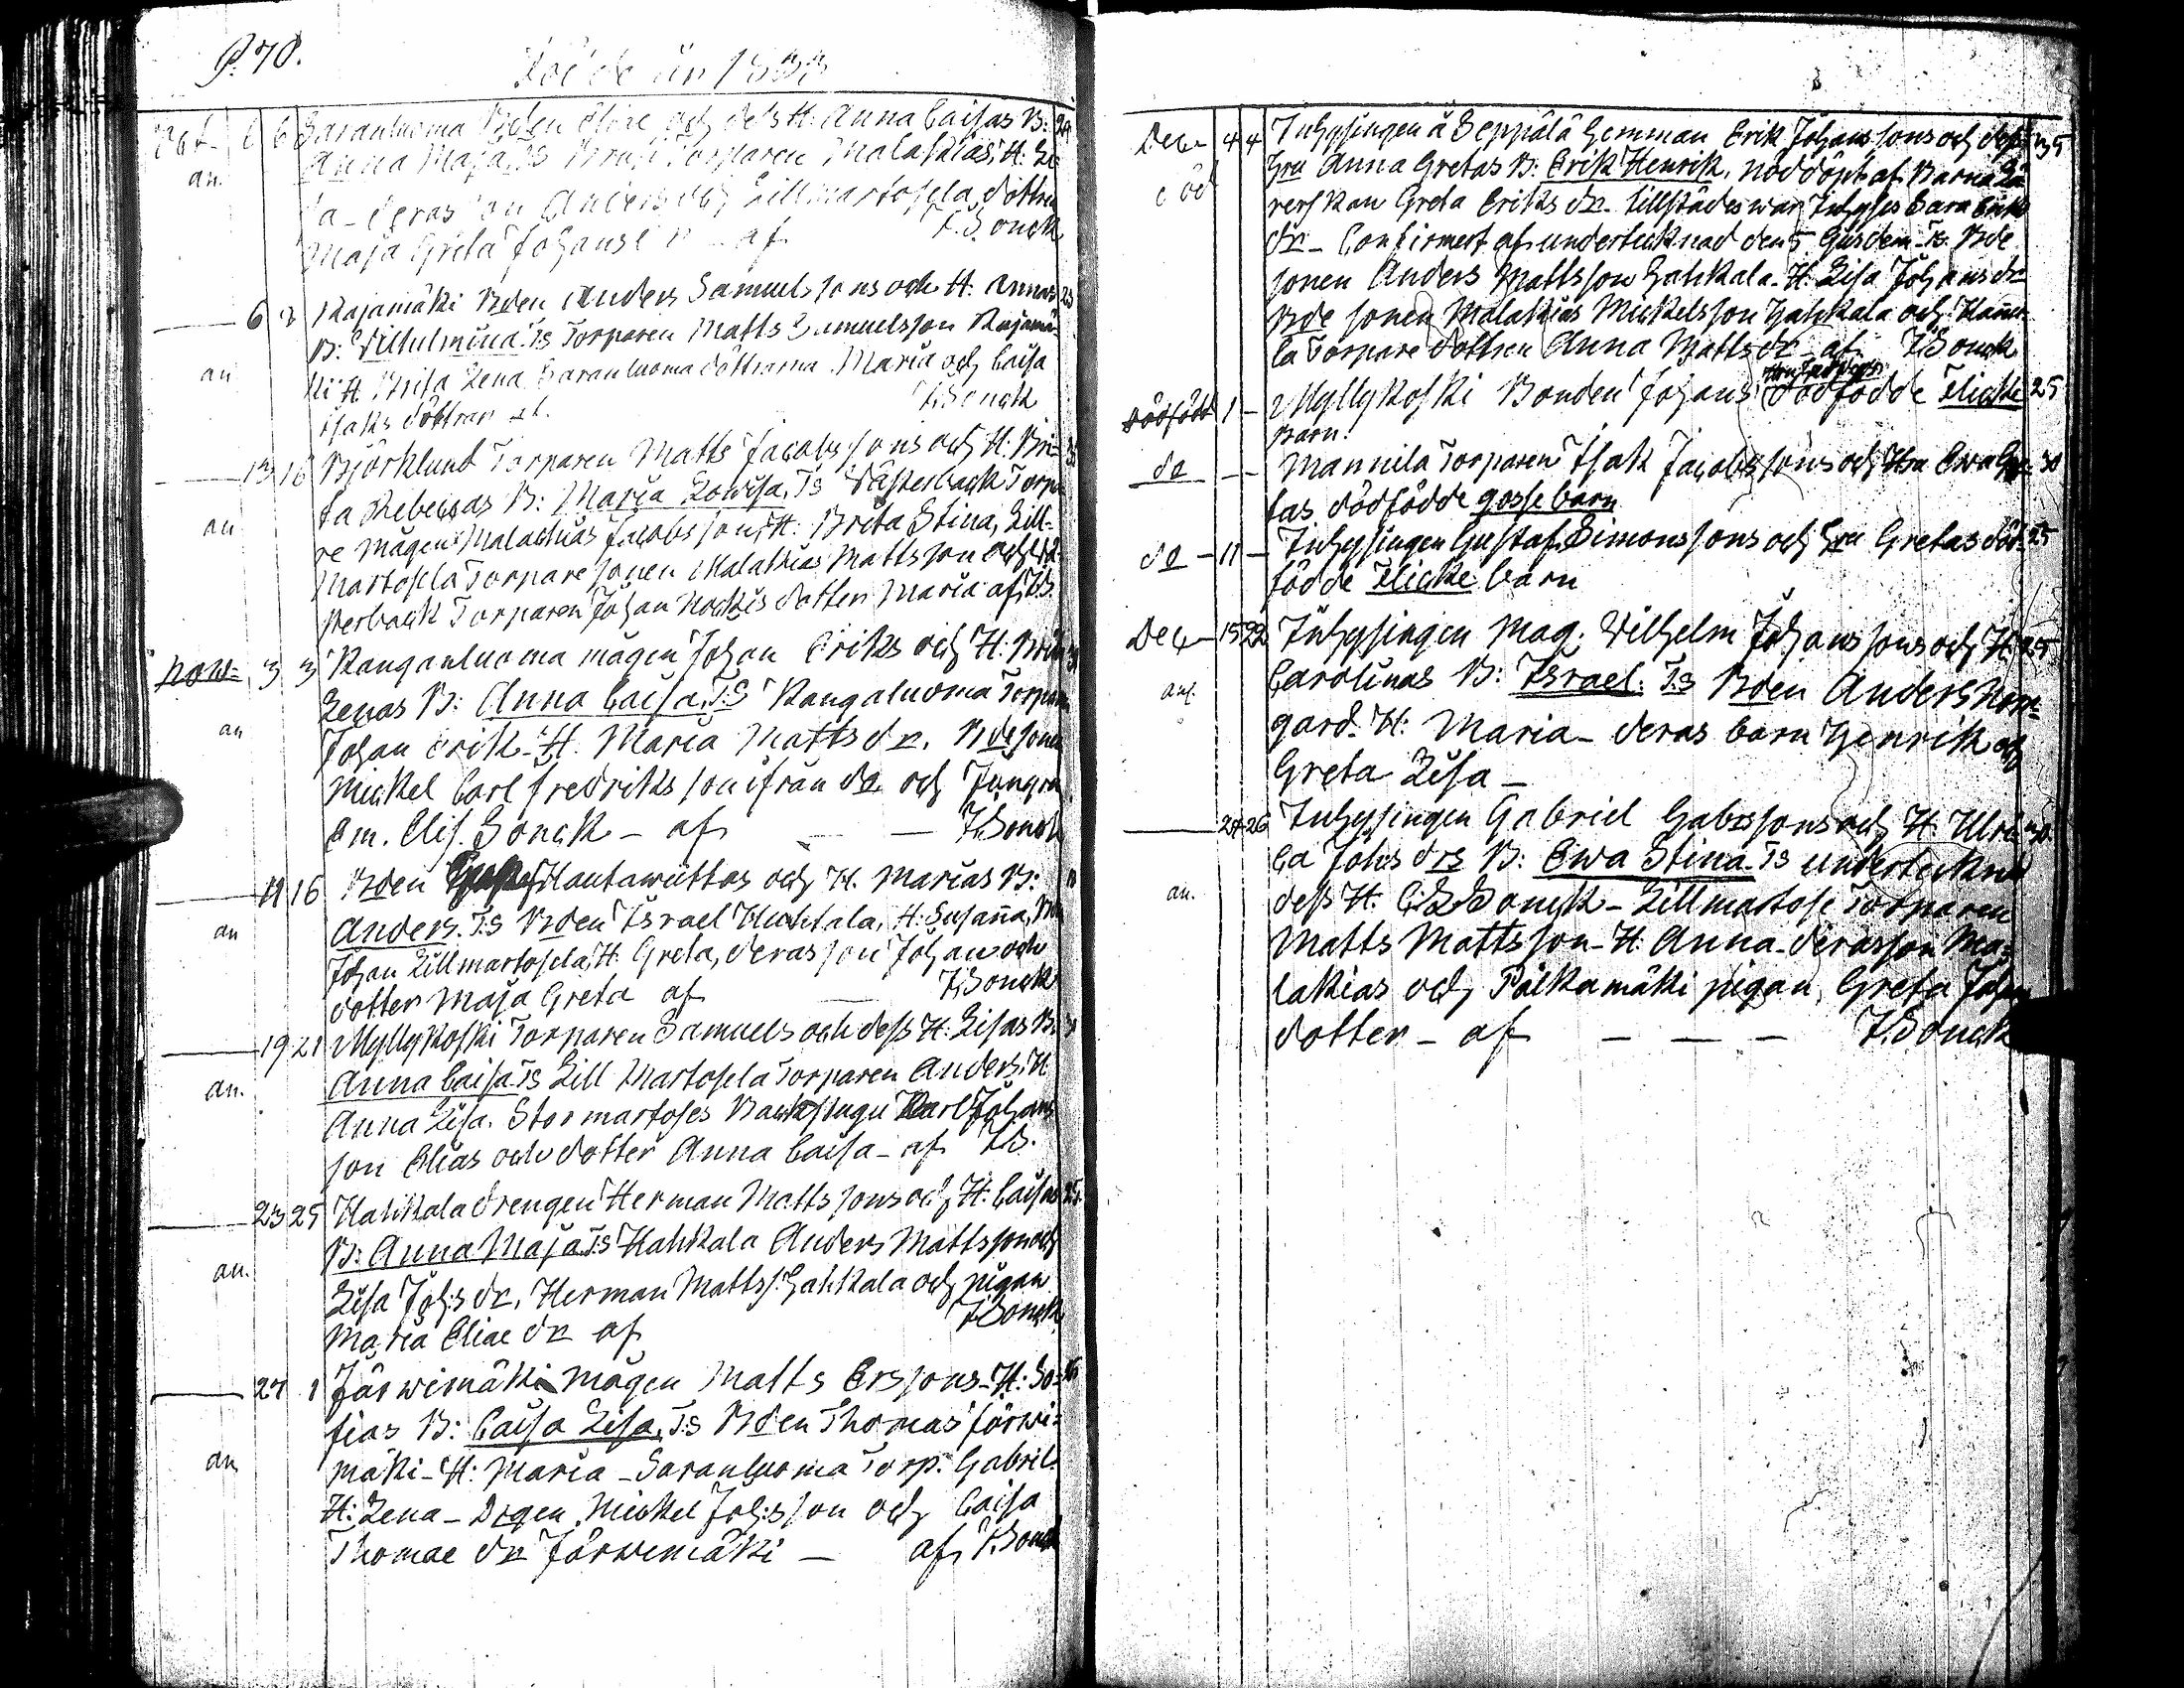 P. 70.
Födde år 1833
Oct. 6 6 Saranluoma Bden Elire och dess H: Anna Caisas B: 29
an. Anna Maja, Ts Torparen Malakias, H: Li-
sa - deras son Anders och Lillmartosela dottren
Maja Greta Johans - af F. Sonck
6 Kajamäki Bden Anders Samuelssons och H. Annas 23
B: Vilhelmina. Ts Torparen Matts Samuelsson Kajamä-
an ki H. Brita Lena Saranluoma döttrarna Maria och Caisa
Isaks döttrar af. F. Sonck
13 16 Björklund Torparen Matts Jacobssons och H. Bri-
ta Rebeccas B: Maria Lowisa, Ts Västerback Torpa-
an re mågen Malachias Jacobsson, H: Brita Stina, Lill-
martosela Torpare sonen Malakias Mattsson och
sterback Torparen Johan dotter Maria af FS.
Now 3 3 Kanganluoma mågen Johan Eriks och H:
Lenas B: Anna Caisa, T:S Kangaluoma Torparen
an Johan Erik - H. Maria Matts dr. Bde sonen
Mickel Carl Fredriksson ifrån do och Jungfru
Em. Elis. Sonck - af — F. Sonck
11 16 Bden Hautawiittas och H. Marias B:
an Anders. T:S Bden Israel Huhtala, H: Susaña,
Johan Lillmartosela, H: Greta, deras son Johan och
dotter Maja Greta af — F. Sonck
19 21 Myllykoski Torparen Samuels och dess H: Lisas B.
an. Anna Caisa. Ts Lill Martosela Torparen Anders, H.
Anna Lisa. Stormartoses Karl Johans
son Elias och dotter Anna Caisa - af FS.
23 25 Hahkala drengen Herman Mattssons och H: Caisas 25
B: Anna Maja. Ts Hahkala Anders Mattsson och
an. Lisa Joh:s dr, Herman Matts s. Hahkala och pigan
Maria Eliae dr af F. Sonck
27 1 Järwimäki mågen Matts Erssons - H: So-
fias B: Caisa Lisa, T:s Bden Thomas Järwi-
an mäki - H: Maria - Saranluoma Torp: Gabriel.
H: Lena - Drgen Mickel Joh:sson och Caisa
Thomae dr Järwimäki — af F. Sonck
Dec 4 4 Juhysingen å Seppälä hemman Erik Johanssons och dess 35
död Hru Anna Gretas B: Erik Henrik, nöddöpt af Barna Lä-
rerskan Greta Eriks dr. tillstädes war Juhyses Sara Eriks
dr - Confirmert af undertecknad den 5 hujus dem - Ts. Bde
sonen Anders Mattsson Hahkala - H. Lisa Johans dr
Bde sonen Malakias Mickelsson Hahkala och
la Torpare dottren Anna Matts dr - af F. Sonck
Dödfödt 1 — Myllykoski Bonden Johans dödfödde Flicke 25
barn.
do — — Mannila Torparen Isak Jacobssons och Hru Ewa Gre- 30
tas dödfödde gosse barn
do — 11 — Juhysingen Gustaf Simonssons och Hru Gretas död- 25
födde Flicke barn
Dec 15 22 Juhysingen Mag. Wilhelm Johanssons och H: 25
an. Carolinas B: Israel. T:s Bden Anders Norr-
gård - H: Maria - deras barn Henrik och
Greta Lisa —
24 26 Juhysingen Gabriel Gabrssons och H. Ulri-
ca Johs drs B: Ewa Stina. Ts undertecknad
an. dess H: Sonck - Lillmartose Torparen
Matts Mattsson - H: Anna - deras son Ma-
lakias och Palkamäki pigan, Greta Johans
dotter - af — — — F. Sonck